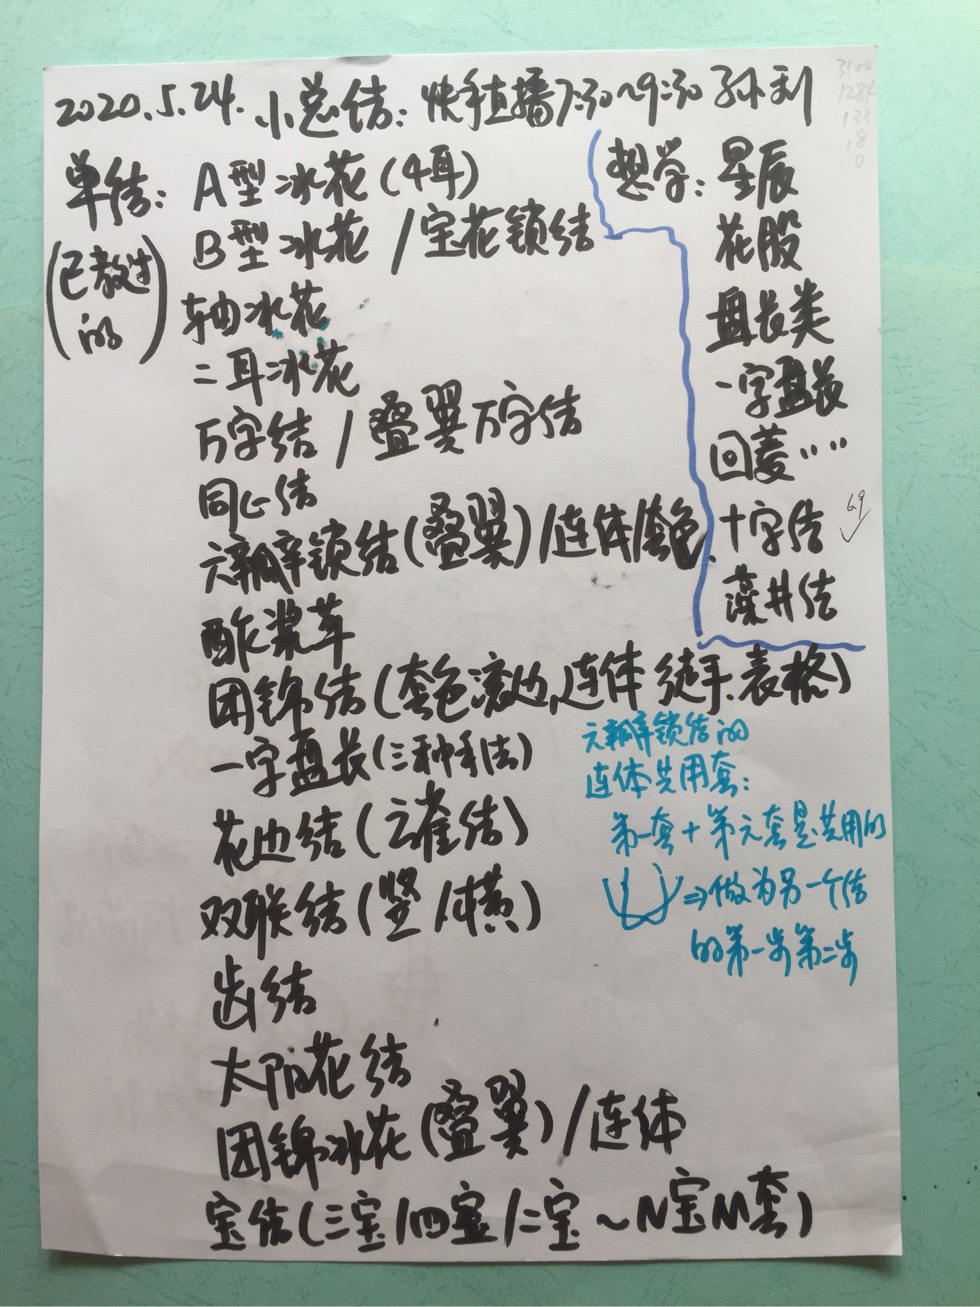 2020.5.24. 小总结: 快手直播7:30~9:30 孙利
3100
1284
135
18
0
单结:
(已教过的)
A型冰花(4耳)
B型冰花/宝花锁结
轴冰花
二耳冰花
万字结/叠翼万字结
同心结
六瓣锁结(叠翼)/连体/套色
酢浆草
团锦结(套色滚边、连体 徒手、表格)
一字盘长(三种手法)
花边结(云雀结)
双联结(竖/横)
齿结
太阳花结
团锦冰花(叠翼)/连体
宝结(三宝/四宝/二宝~N宝M套)
想学: 星辰
花股
盘长类
一字盘长
回菱……
十字结
藻井结
六瓣锁结的
连体共用套:
第一套+第六套是共用的
⇒做为另一个结
的第一步第二步